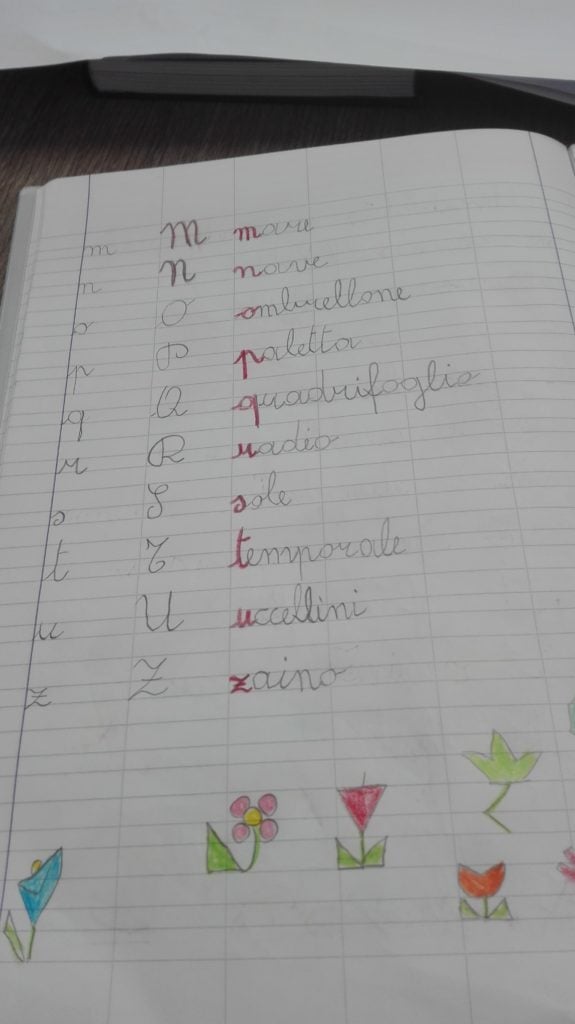 m M mare
n N nave
o O ombrellone
p P paletta
q Q quadrifoglio
r R radio
s S sole
t T temporale
u U uccellini
z Z zaino